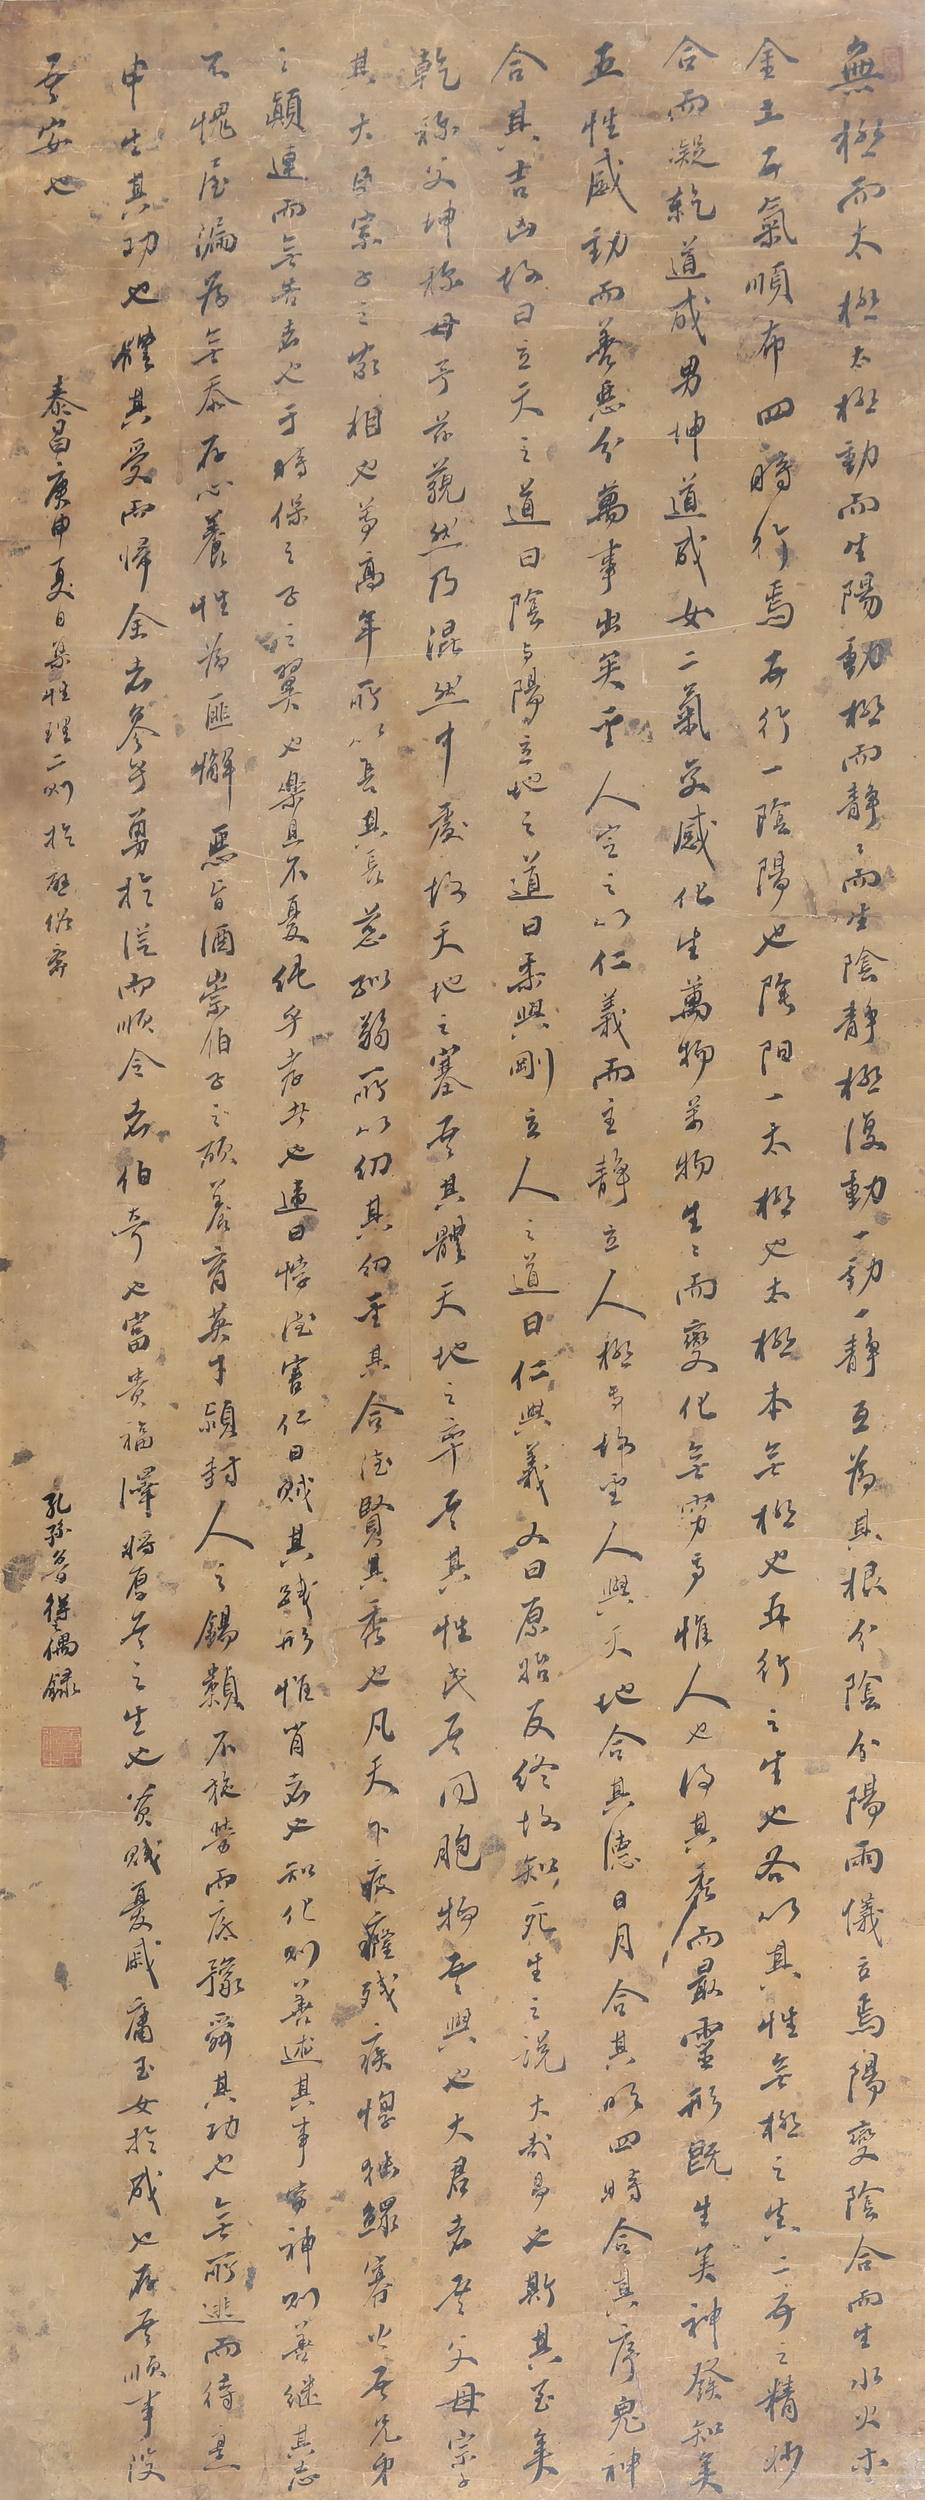 無極而太極太極動而生陽動極而靜靜而生陰靜極復動一動一靜互為其根分陰分陽兩儀立焉陽變陰合而生水火木
金土五氣順布四時行焉五行一陰陽也陰阳一太極也太極本無極也五行之生也各以其性無極之真二五之精妙
合而凝乾道成男坤道成女二氣交感化生萬物萬物生生而變化無窮焉惟人也得其秀而最靈形既生矣神發知矣
五性感動而善惡分萬事出矣聖人定之以仁義而主靜立人極焉故聖人與天地合其德日月合其明四時合其序鬼神
合其吉凶故曰立天之道曰陰与陽立地之道曰柔與剛立人之道曰仁與義又曰原始反終故知死生之說大哉易也斯其至矣
乾称父坤称母予茲藐然乃混然中處故天地之塞吾其體天地之率吾其性民吾同胞物吾與也大君者吾父母宗子
其大臣宗子之家相也尊高年所以長其長慈孤弱所以幼其幼聖其合德賢其秀也凡天下疲癃残疾惸独鰥寡皆吾兄弟
之顛連而無告者也于時保之子之翼也樂且不憂純乎孝者也違曰悖德害仁曰賊其踐形惟肖者也知化則善述其事窮神則善継其志
不愧屋漏為無忝存心養性為匪懈惡旨酒崇伯子之顧養育英才穎封人之錫類不弛勞而底豫舜其功也無所逃而待烹
申生其功也體其受而帰全者參乎勇於從而順令者伯奇也富贵福澤將厚吾之生也貧賤憂戚庸玉女於成也存吾順事没
吾安也
泰昌庚申夏日集性理二则於
孔孫魯得偶録